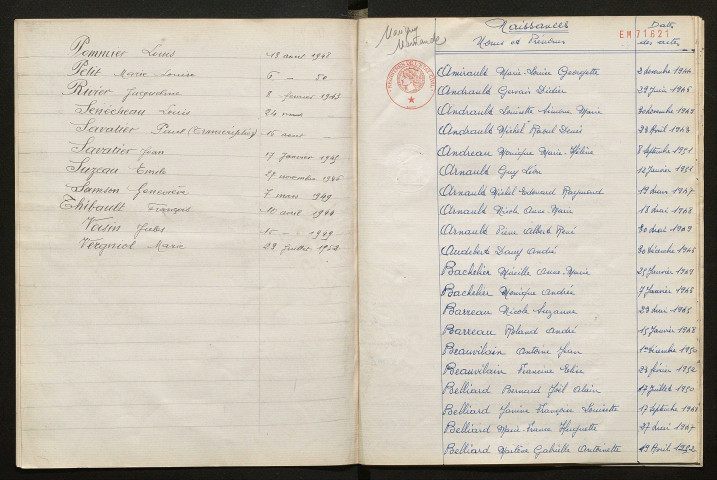 Pommier Louis 13 aout 1948
Petit Marie Louise 6 - 50
Rivier Jacqueline 8 février 1945
Senécheau Louis 24 mars
Savatier Paul (Transcription) 16 aout
Savatier Jean 17 janvier 1945
Suzeau Emile 27 novembre 1946
Samson Geneviève 7 mars 1949
Thibault François 10 avril 1944
Voisin Jules 15 - 1949
Vergniol Marie 22 juillet 1952
Marigny
Marmande
Naissances
Noms et Prénoms
Date
des actes
EM 71621
Amirault Marie Louise Georgette 2 décembre 1944
Andrault Gervais Didier 29 Juin 1946
Andrault Louisette Simone Marie 30 décembre 1949
Andrault Michel Raoul Denis 23 Août 1948
Andreau Monique Marie-Hélène 8 Septembre 1951
Arnault Guy Léon 12 Janvier 1951
Arnault Michel Edouard Raymond 19 Mars 1947
Arnault Nicole Anne Marie 18 Mai 1948
Arnault Pierre Albert René 30 Mai 1949
Audebert Dany André 30 décembre 1946
Bachelier Mireille Anne-Marie 25 Janvier 1949
Bachelier Monique Andrée 7 Janvier 1946
Barreau Nicole Suzanne 23 Mai 1945
Barreau Roland André 15 Janvier 1948
Beauvilain Antoine Jean 1er décembre 1950
Beauvilain Francine Elise 23 février 1952
Belliard Bernard Joël Alain 17 Juillet 1950
Belliard Janine Françoise Louisette 17 Septembre
Belliard Marie-France Huguette 27 Mai 1947
Belliard Marlène Gabrielle Antoinette 19 Août 1952